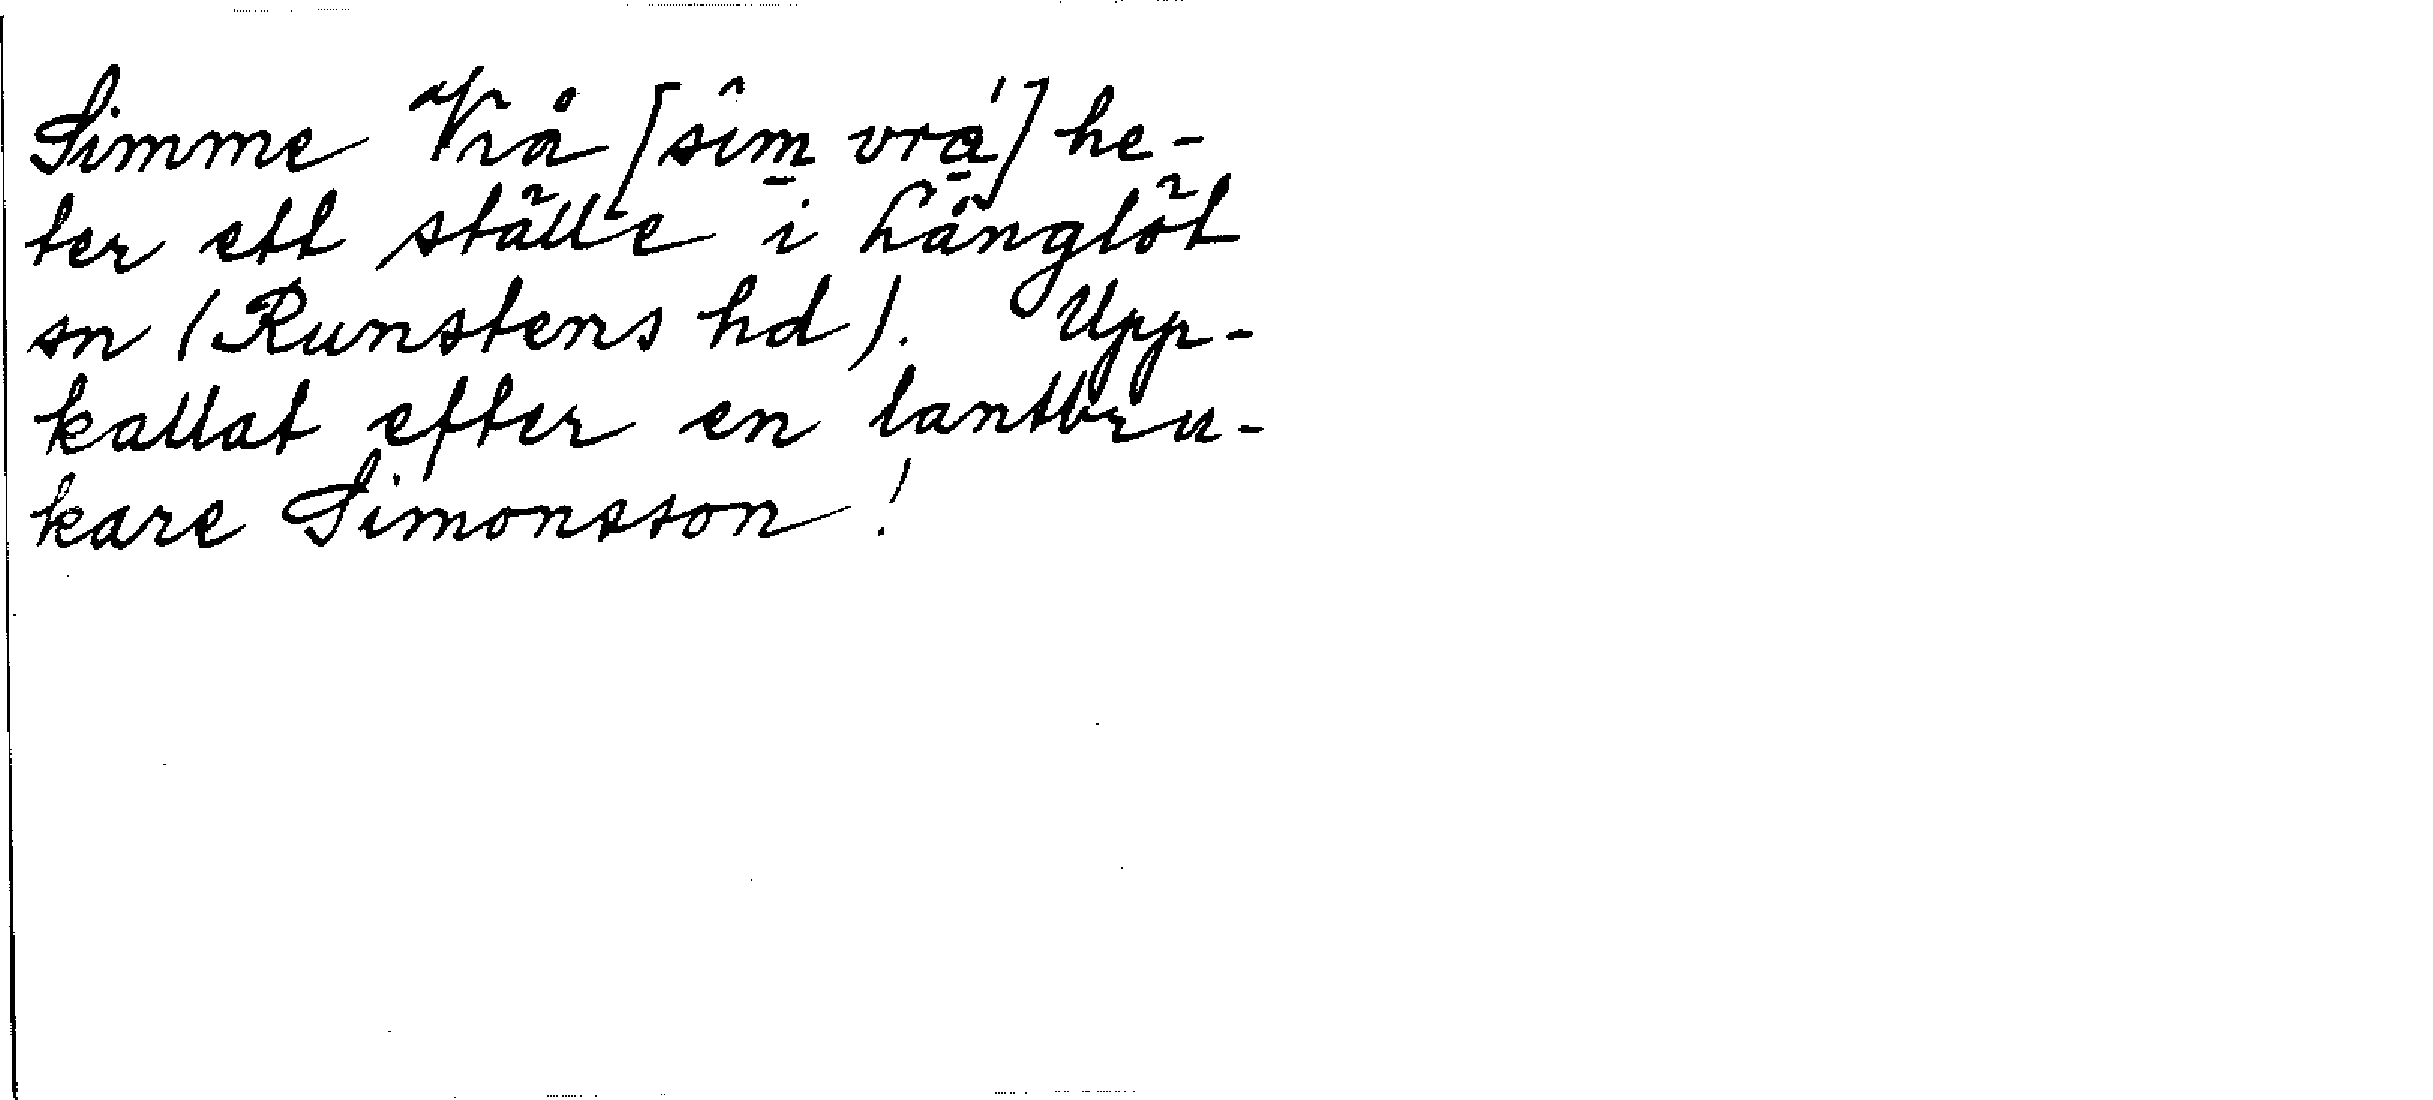 Simme Vrå [sîm̲ vra̲ ́] he-
ter ett ställe i Långlöt
sn (Runstens hd). Upp-
kallat efter en lantbru-
kare Simonsson!